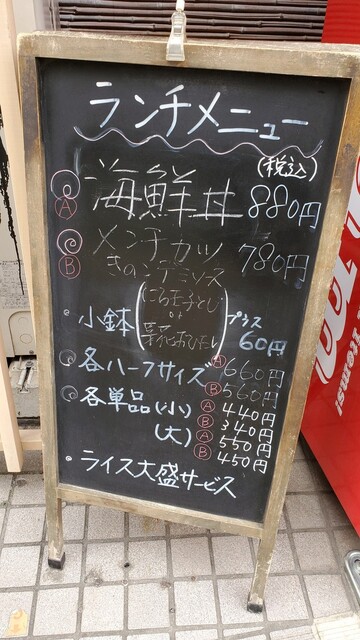 ランチメニュー
(税込)
Ⓐ 海鮮丼 880円
Ⓑ メンチカツ 780円
きのこデミソース
・小鉢 (にら玉子とじ or 菜花おひたし) プラス 60円
・各ハーフサイズ Ⓐ 660円
Ⓑ 560円
・各単品 (小) Ⓐ 440円
Ⓑ 340円
(大) Ⓐ 550円
Ⓑ 450円
・ライス大盛サービス